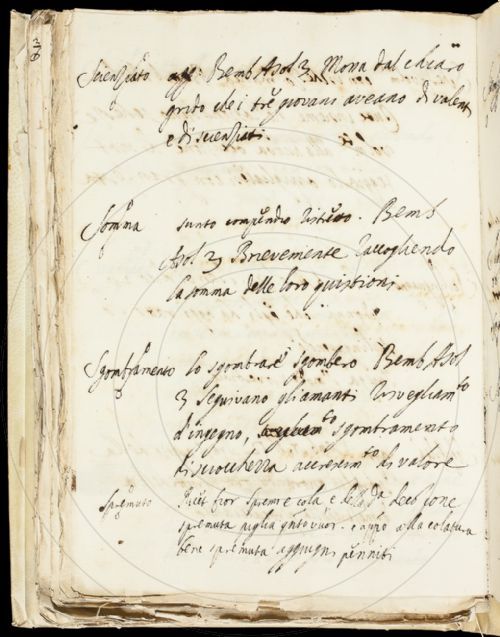 Scienziato agg. Bemb Asol 3 Mona dal chiaro
grido che i tre giovani aveano di valenti
e di scienziati.
Somma sunto compendio ristretto. Bemb
Asol 3 Brievemente raccogliendo
la somma delle loro quistioni
Sgombramento lo sgombrare sgombero Bemb Asol
3 Seguivano gli amanti risvegliamto
d'ingegno, sgombramento
di sciocchezza accrescimto di valore
spremuto Ricet fior spreme cola e
spremuta piglia e appo alla colatura
bene spremuta aggiugni penniti